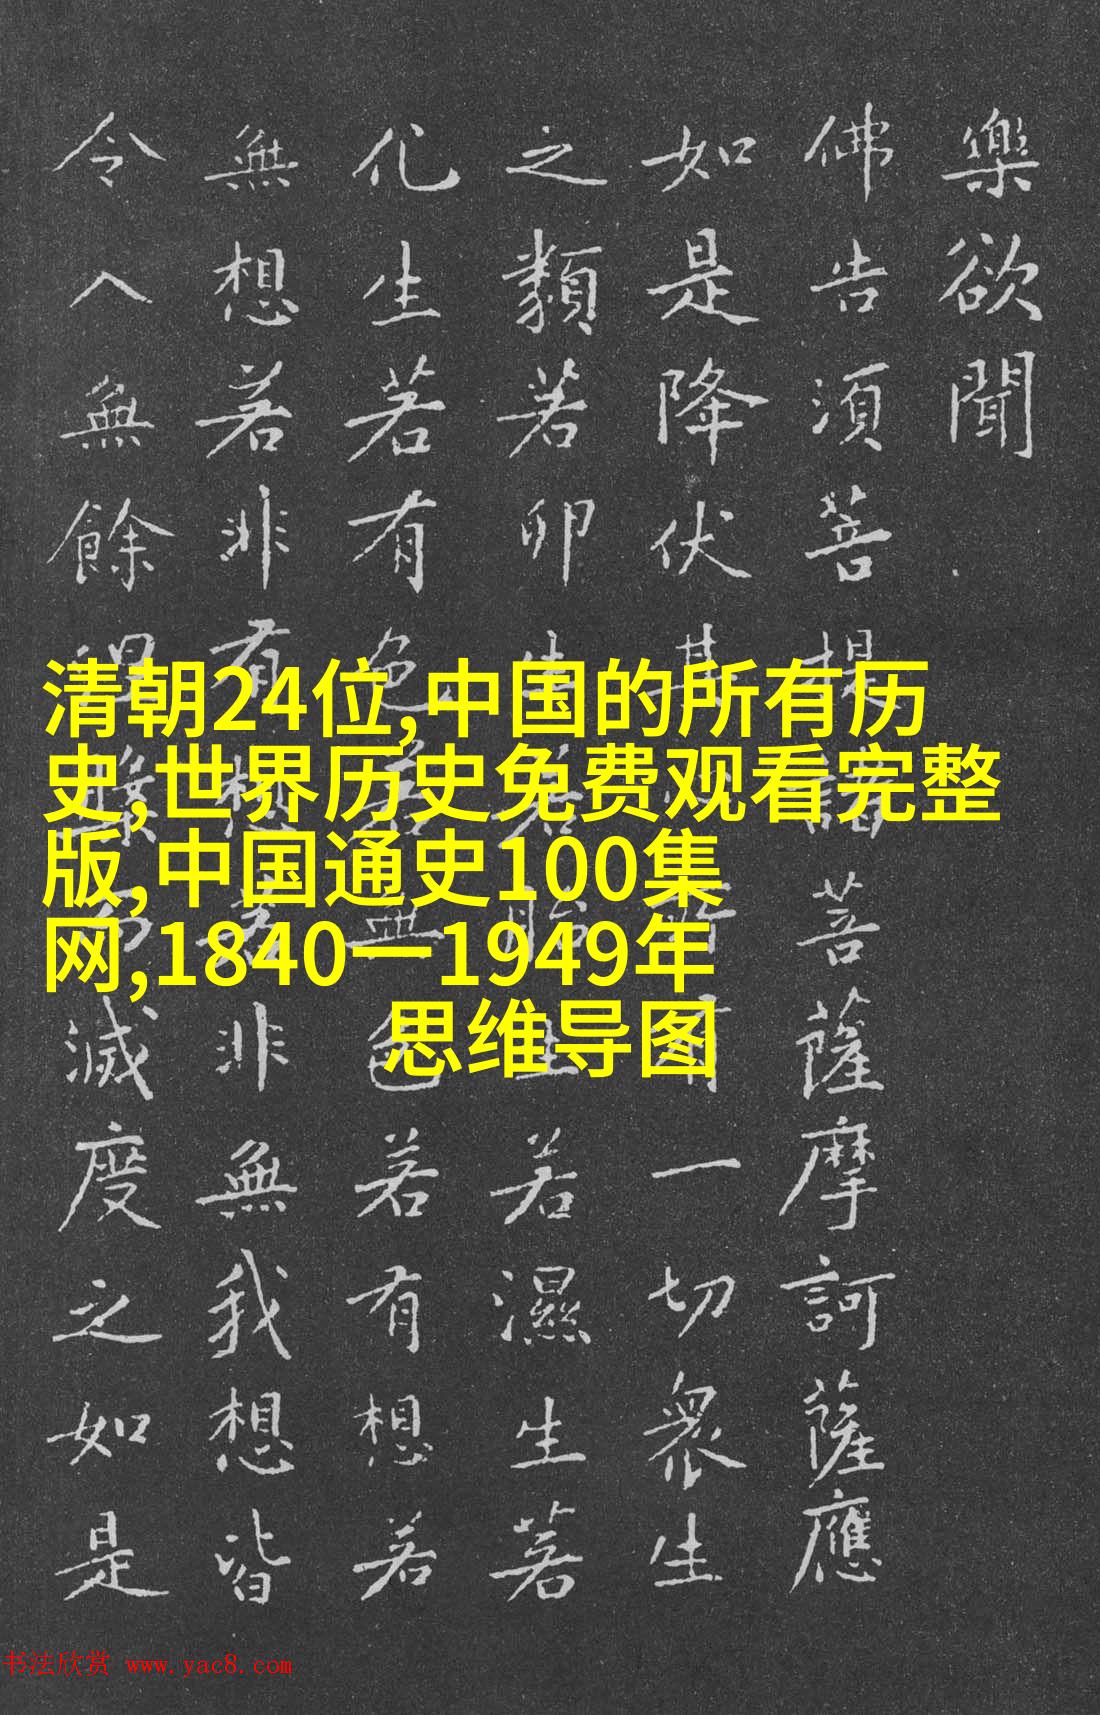 樂欲聞
佛告須菩提諸菩薩摩訶薩應
如是降伏其所有一切衆生
之類若卵生若胎生若濕生若
化生若有色若無色若有想若
無想若非有想若非無我想皆
令入無餘涅槃而滅度之如是
清朝24位,中国的所有历
史,世界历史免费观看完整
版,中国通史100集
网,1840一1949年
思维导图
书法欣赏 www.yac8.com